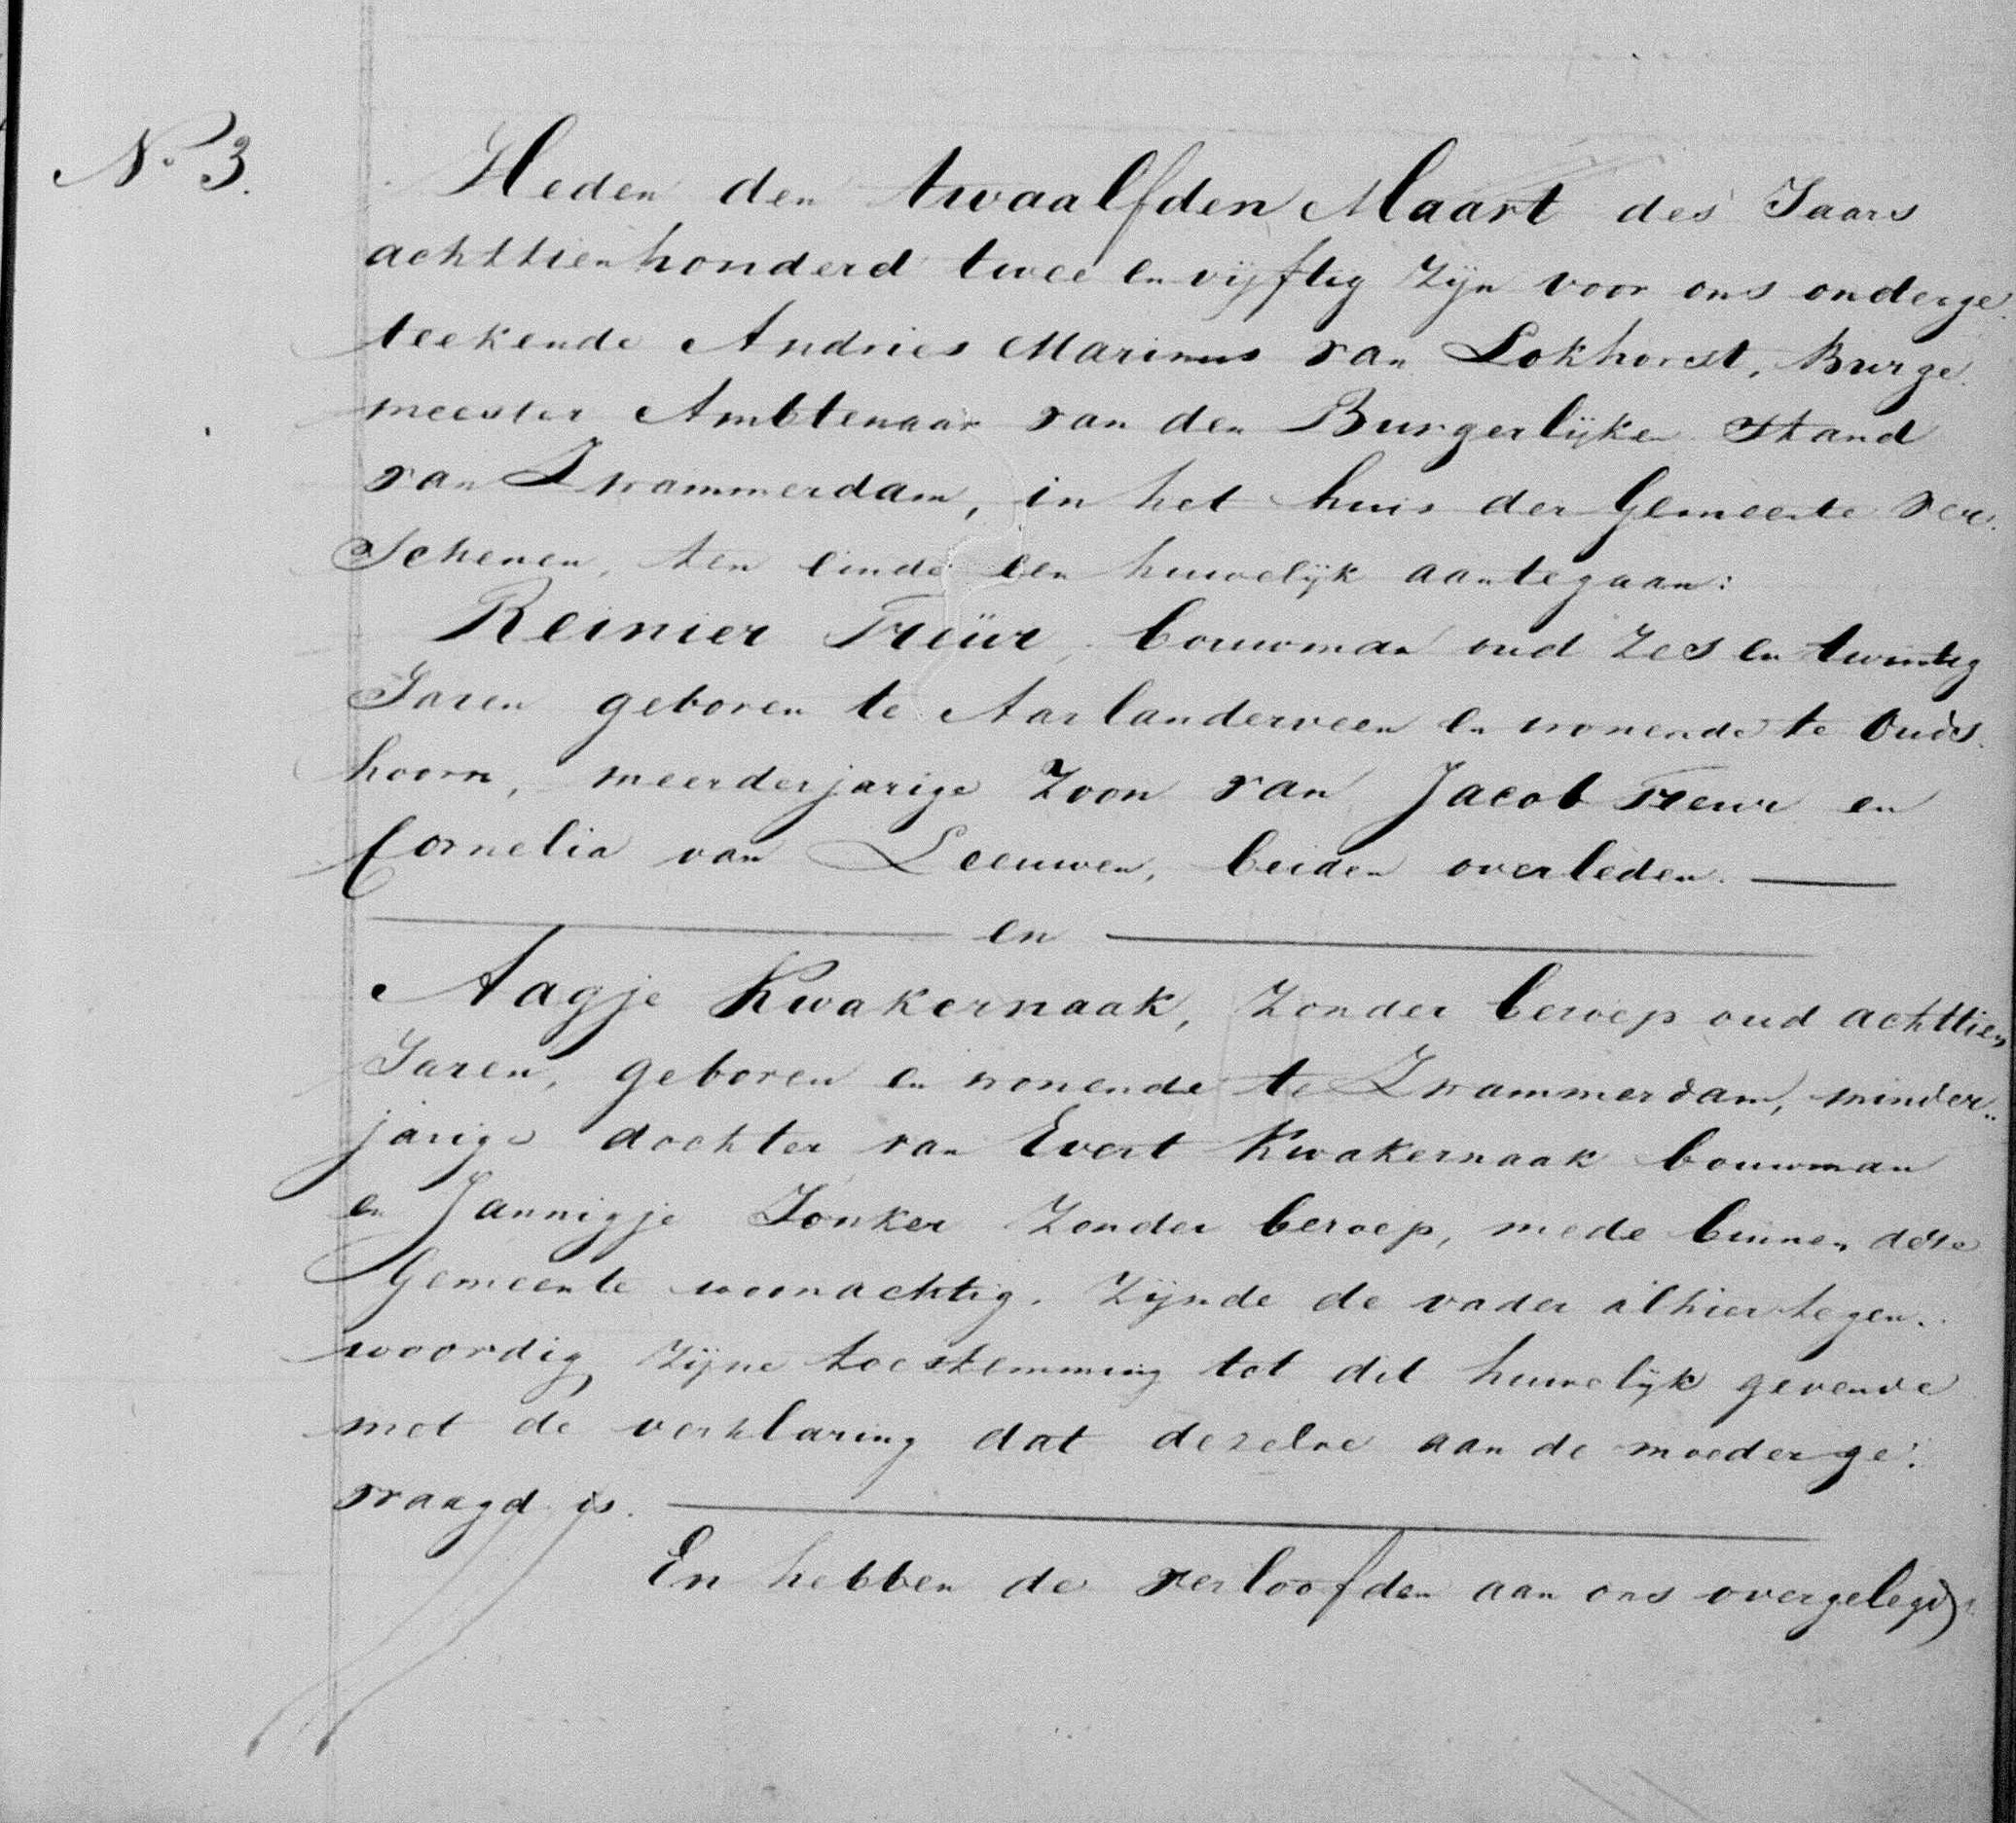 No 3.
Heden den twaalfden Maart des Jaars
achttienhonderd twee en vijftig zijn voor ons onderge-
teekende Andries Marinus van Lokhorst, Burge-
meester Ambtenaar van den Burgerlijken Stand
van Zwammerdam, in het huis der Gemeente ver-
schenen, ten einde een huwelijk aantegaan:
Reinier Treür, bouwman oud zes en twintig
Jaren geboren te Aarlanderveen en wonende te Ouds-
hoorn, meerderjarige Zoon van Jacob Treur en
Cornelia van Leeuwen, beiden overleden.
en
Aagje Kwakernaak, Zonder beroep oud achttien
Jaren, geboren en wonende te Zwammerdam, minder-
jarige dochter van Evert Kwakernaak bouwman
en Jannigje Jonker Zonder beroep, mede binnen deze
Gemeente woonachtig. Zijnde de vader alhier tegen-
woordig zijne toestemming tot dit huwelijk gevende
met de verklaring dat dezelve aan de moeder ge-
vraagd is.
En hebben de verloofden aan ons overgelegd